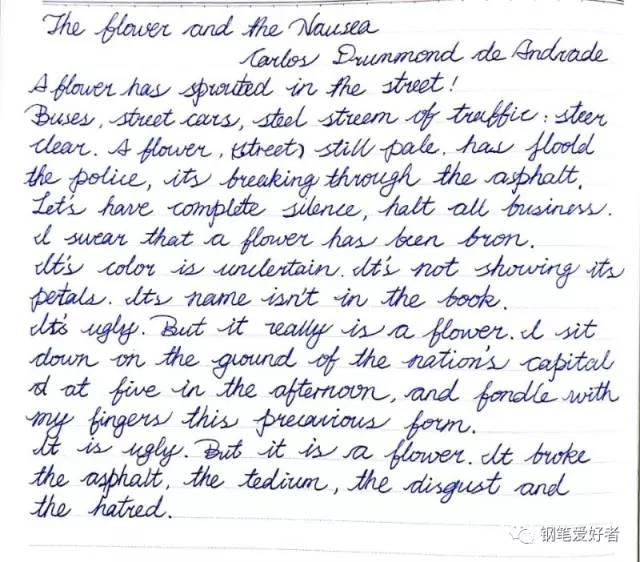 The flower and the Nausea
Carlos Drummond de Andrade
A flower has sprouted in the street!
Buses, street cars, steel streem of traffic: steer
clear. A flower, (street) still pale, has floold
the police, its breaking through the asphalt.
Let's have complete silence, halt all business.
I swear that a flower has been bron.
It's color is unclertain. It's not showing its
petals. Its name isn't in the book.
It's ugly. But it really is a flower. I sit
down on the ground of the nation's capital
at five in the afternoon, and fondle with
my fingers this precarious form.
It is ugly. But it is a flower. It broke
the asphalt, the tedium, the disgust and
the hatred.
钢笔爱好者